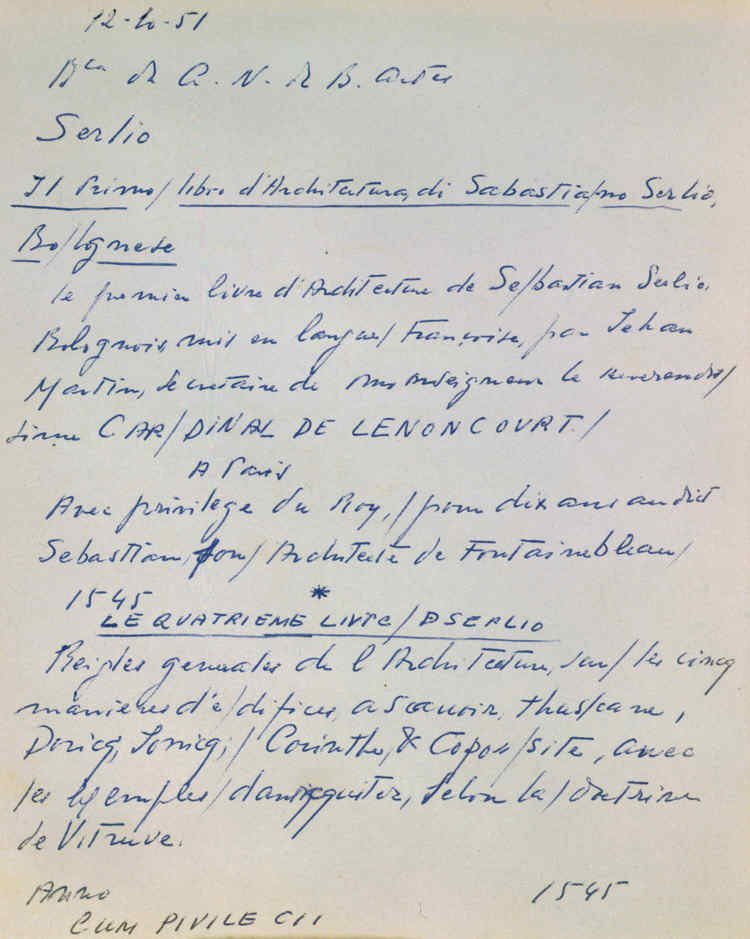 12-10-51
Bca de A. N. de B. Artes
Serlio
Il Primo/libro d'Architetura, di Sabastia/no Serlio,
Bo/lognese
le premier livre d'Architecture de Se/bastian Serlio.
Bolognois, mis en langue/Françoise, par Jehan
Martin, secretaire de monseigneur le reverendis/
sime CAR/DINAL DE LENONCOURT./
A Paris
Avec privilege du Roy,/pour dix ans audict
Sebastian, son/Architecte de Fontainebleau/
1545 *
LE QUATRIEME LIVRE/DSERLIO
Reigles generales de l'Architecture, sur/les cincq
manieres d'e/difices, a scavoir, thus/cane,
Doricq, Ionicq,/Corinthe, & Copos/site, avec
les exemples/danticquitez, selon la/doctrine
de Vitruve.
Anno 1545
CUM PIVILECII